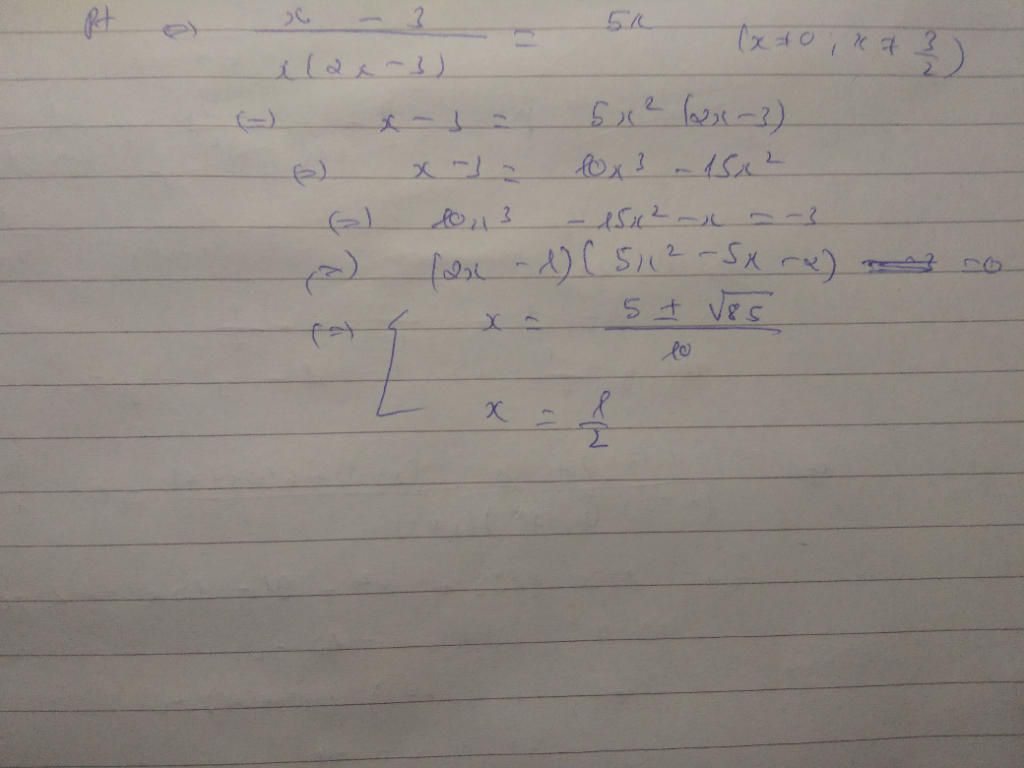 pt ⇔ \frac{x - 3}{x(2x-3)} = 5x (x ≠ 0 ; x ≠ \frac{3}{2})
⇔ x - 3 = 5x² (2x-3)
⇔ x - 3 = 10x³ - 15x²
⇔ 10x³ - 15x² - x = -3
⇔ (2x - 1)(5x² - 5x - 2) = 0
⇔ [ x = \frac{5 ± √85}{10}
x = \frac{1}{2}